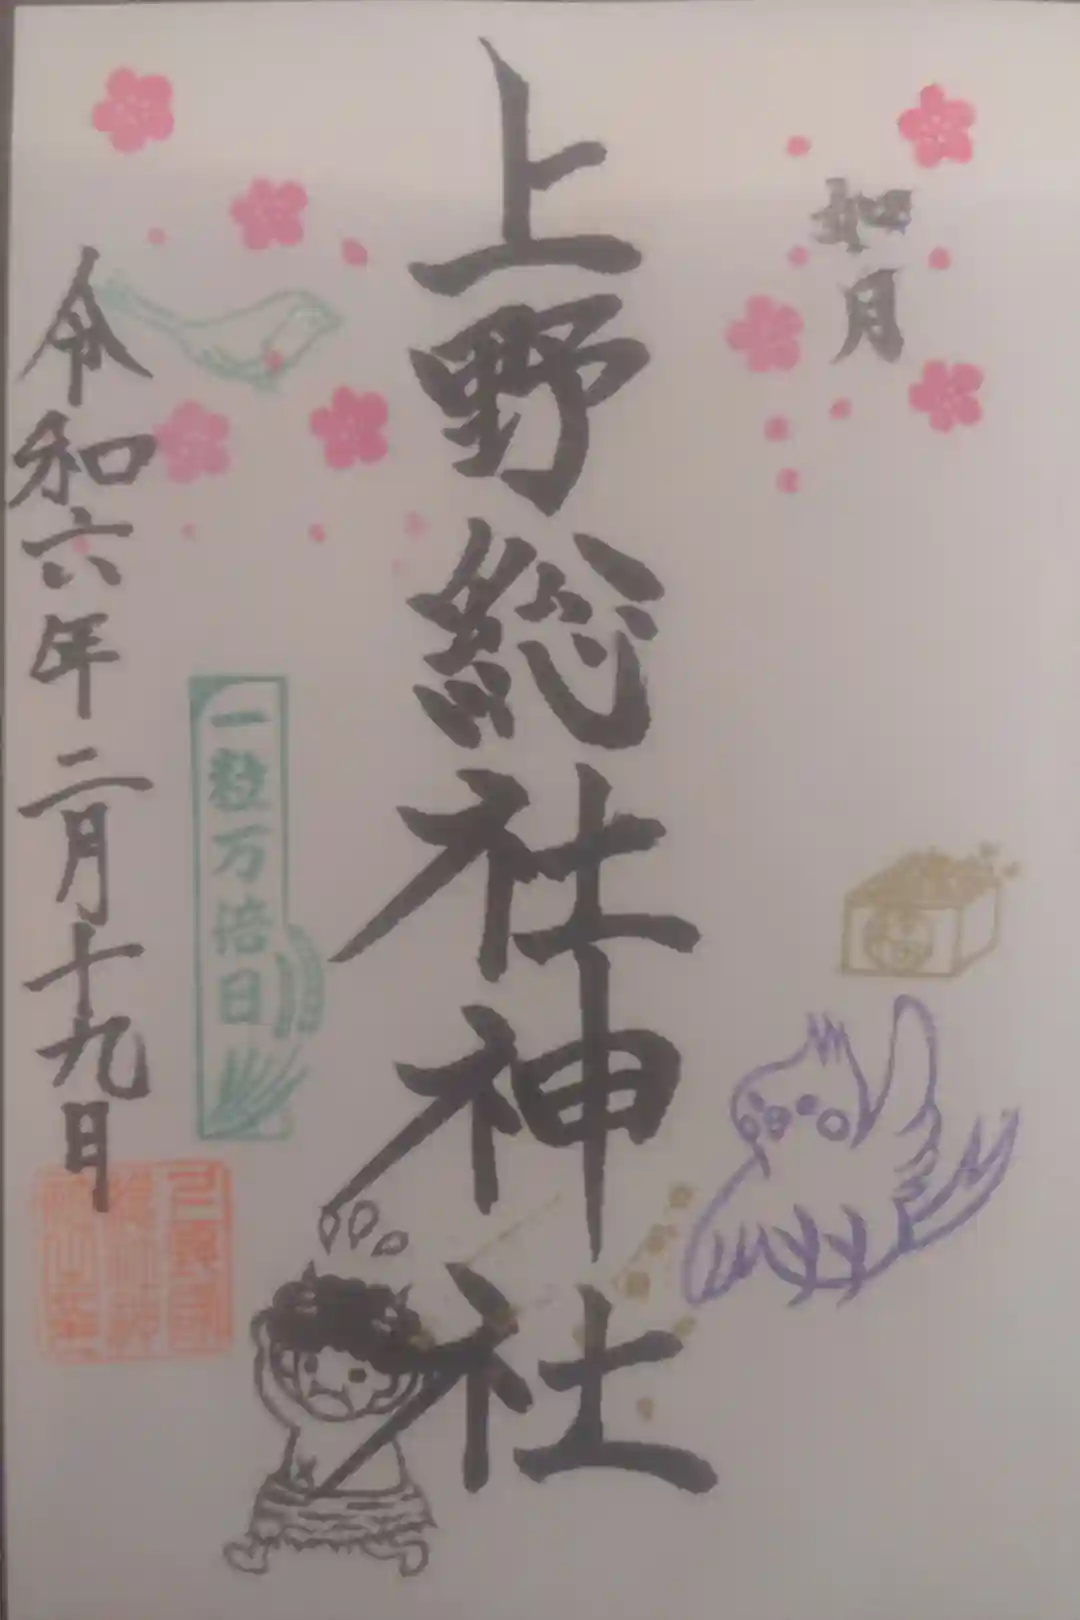 如月
上野総社神社
一粒万倍日
令和六年二月十九日